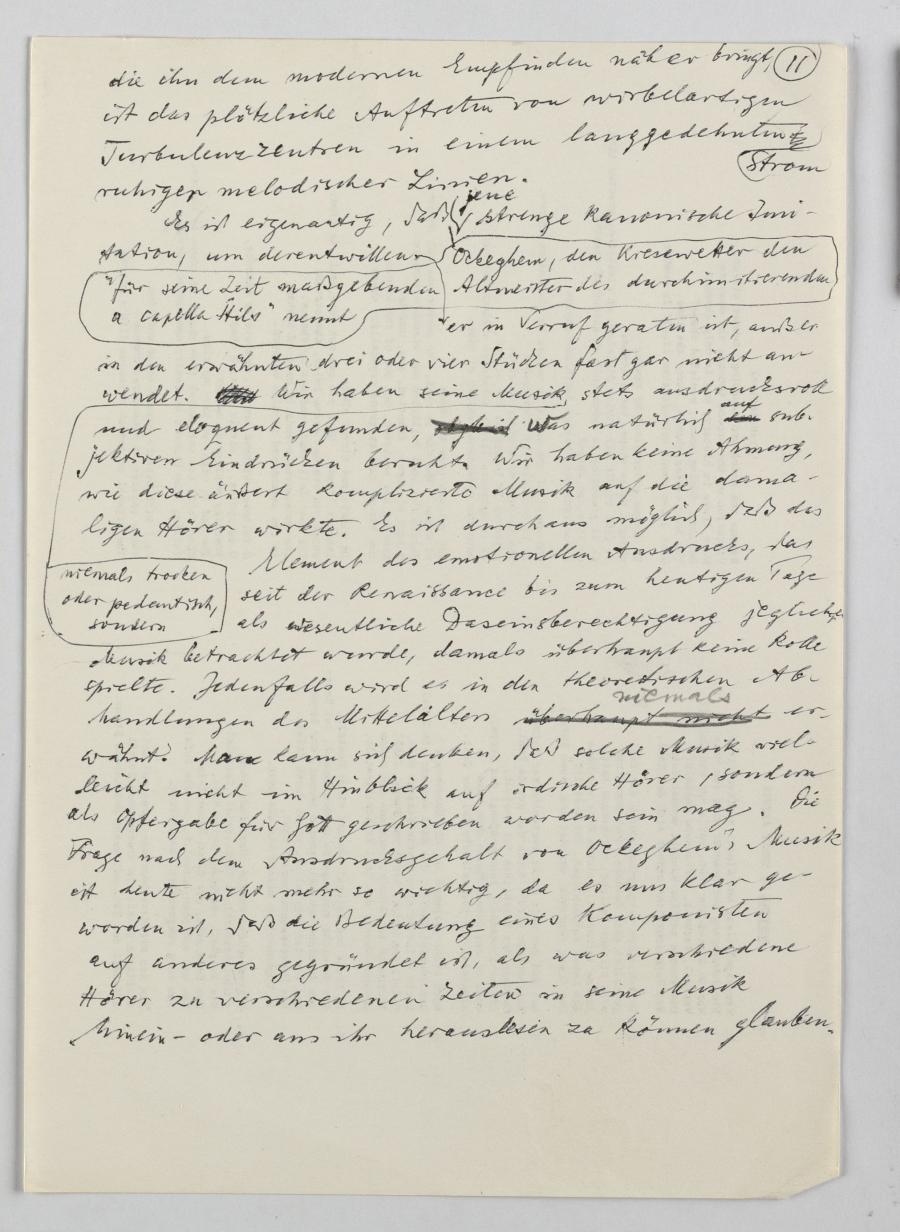 die ihn dem modernen Empfinden näher bringt, 11
ist das plötzliche Auftreten von wirbelartigen
Turbulenzzentren in einem langgedehnten
Strom
ruhiger melodischer Linien.
jene
Es ist eigenartig, daß strenge kanonische Imi-
tation, um derentwillen Ockeghem, den Kiesewetter den
"für seine Zeit maßgebenden Altmeister des durchimitierenden
a capella Stils" nennt
er in Verruf geraten ist, außer
in den erwähnten drei oder vier Stücken fast gar nicht an-
wendet. Wir haben seine Musik stets ausdrucksvoll
auf
und eloquent gefunden, was natürlich sub-
jektiven Eindrücken beruht. Wir haben keine Ahnung,
wie diese äußert komplizierte Musik auf die dama-
ligen Hörer wirkte. Es ist durchaus möglich, daß das
Element des emotionellen Ausdrucks, das
niemals trocken
seit der Renaissance bis zum heutigen Tage
oder pedantisch,
sondern
als wesentliche Daseinsberechtigung jeglicher
Musik betrachtet wurde, damals überhaupt keine Rolle
spielte. Jedenfalls wird es in den theoretischen Ab-
niemals
handlungen des Mittelalters überhaupt nicht er-
wähnt. Man kann sich denken, daß solche Musik viel-
leicht nicht im Hinblick auf irdische Hörer, sondern
als Opfergabe für Gott geschrieben worden sein mag. Die
Frage nach dem Ausdrucksgehalt von Ockeghem's Musik
ist heute nicht mehr so wichtig, da es uns klar ge-
worden ist, daß die Bedeutung eines Komponisten
auf anderes gegründet ist, als was verschiedene
Hörer zu verschiedenen Zeiten in seine Musik
hinein- oder aus ihr herauslesen zu können glauben.